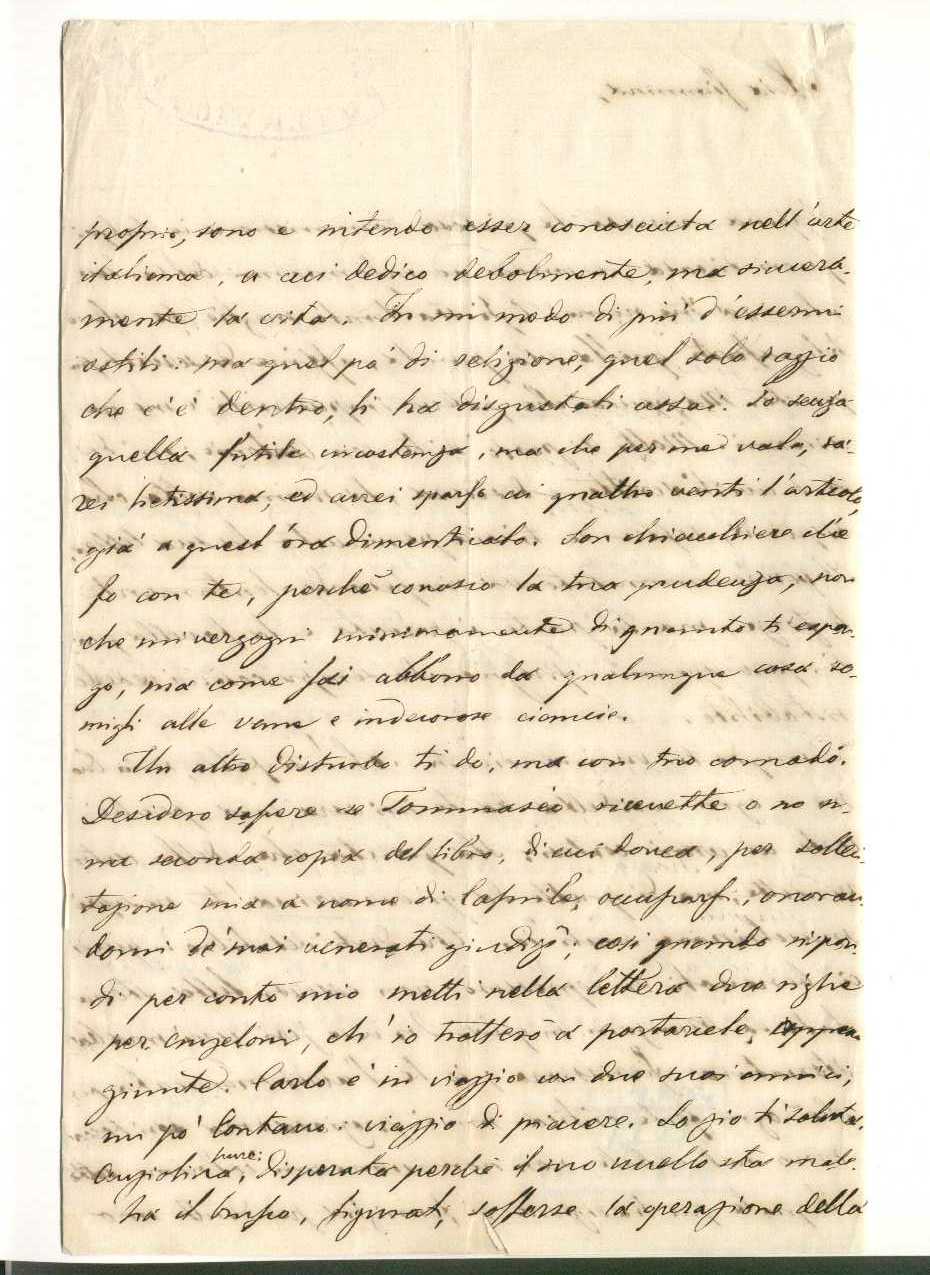 proprio, sono e intendo esser conosciuta nell'arte
italiana, a cui dedico debolmente, ma sincera-
mente la vita. In mi modo di più d'essermi
ostili: ma quel pò di religione, quel solo raggio
che c'è dentro, li ha disgustati assai. Io senza
quella futile circostanza, ma che per me vale, sa-
rei lietissima, ed avrei sparso ai quattro venti l'articolo,
già a quest'óra dimenticato. Son chiacchiere ch'io
fo con te, perchè conosco la tua prudenza, non
che mi vergogni minimamente di quanto ti espon-
go, ma come sai abborro da qualunque cosa so-
migli alle vane e indecorose ciancie.
Un altro disturbo ti do, ma con tuo comodó.
Desidero sapere se Tommaséo ricevette o no u-
na seconda copia del libro, di cui dovea, per solleci-
tazione mia a nome di Caprile, occuparsi, onoran-
domi de' suoi venerati giudizî; così quando rispon-
di per conto mio metti nella lettera due righe
per, ch'io tratterò a portarcele, appena
giunte. Carlo è in viaggio con due suoi amici,
un pò lontano: viaggio di piacere. Lo zio ti saluta,
pure:
disperata perchè il suo uccello sta male.
ha il, figurati, sofferse la operazione della